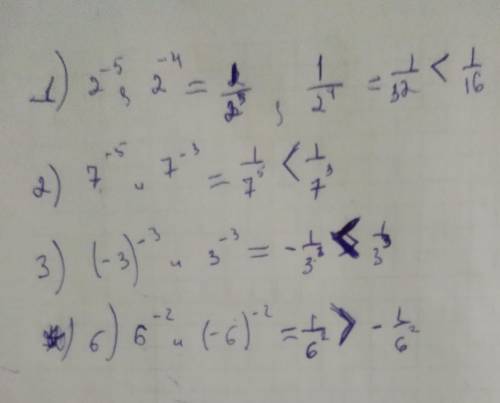 1) 2^-5, 2^-4 = 1/2^5, 1/2^4 = 1/32 < 1/16
2) 7^-5 и 7^-3 = 1/7^5 < 1/7^3
3) (-3)^-3 и 3^-3 = -1/3^3 < 1/3^3
6) 6^-2 и (-6)^-2 = 1/6^2 > -1/6^2